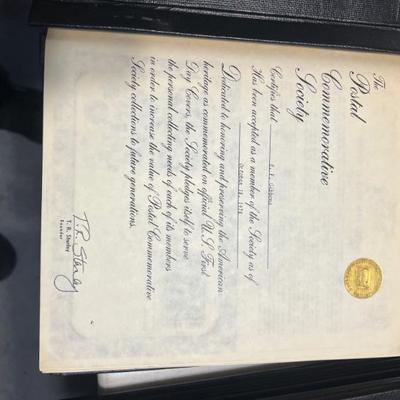 The
Postal
Commemorative
Society
Certifies that
Has been accepted as a member of the Society as of
October 19,
Dedicated to honoring and preserving the American
heritage as commemorated on official U.S. First
Day Covers, the Society pledges itself to serve
the personal collecting needs of each of its members
in order to increase the value of Postal Commemorative
Society collections to future generations.
T.R. Shenley
T. R. Shenley
Founder